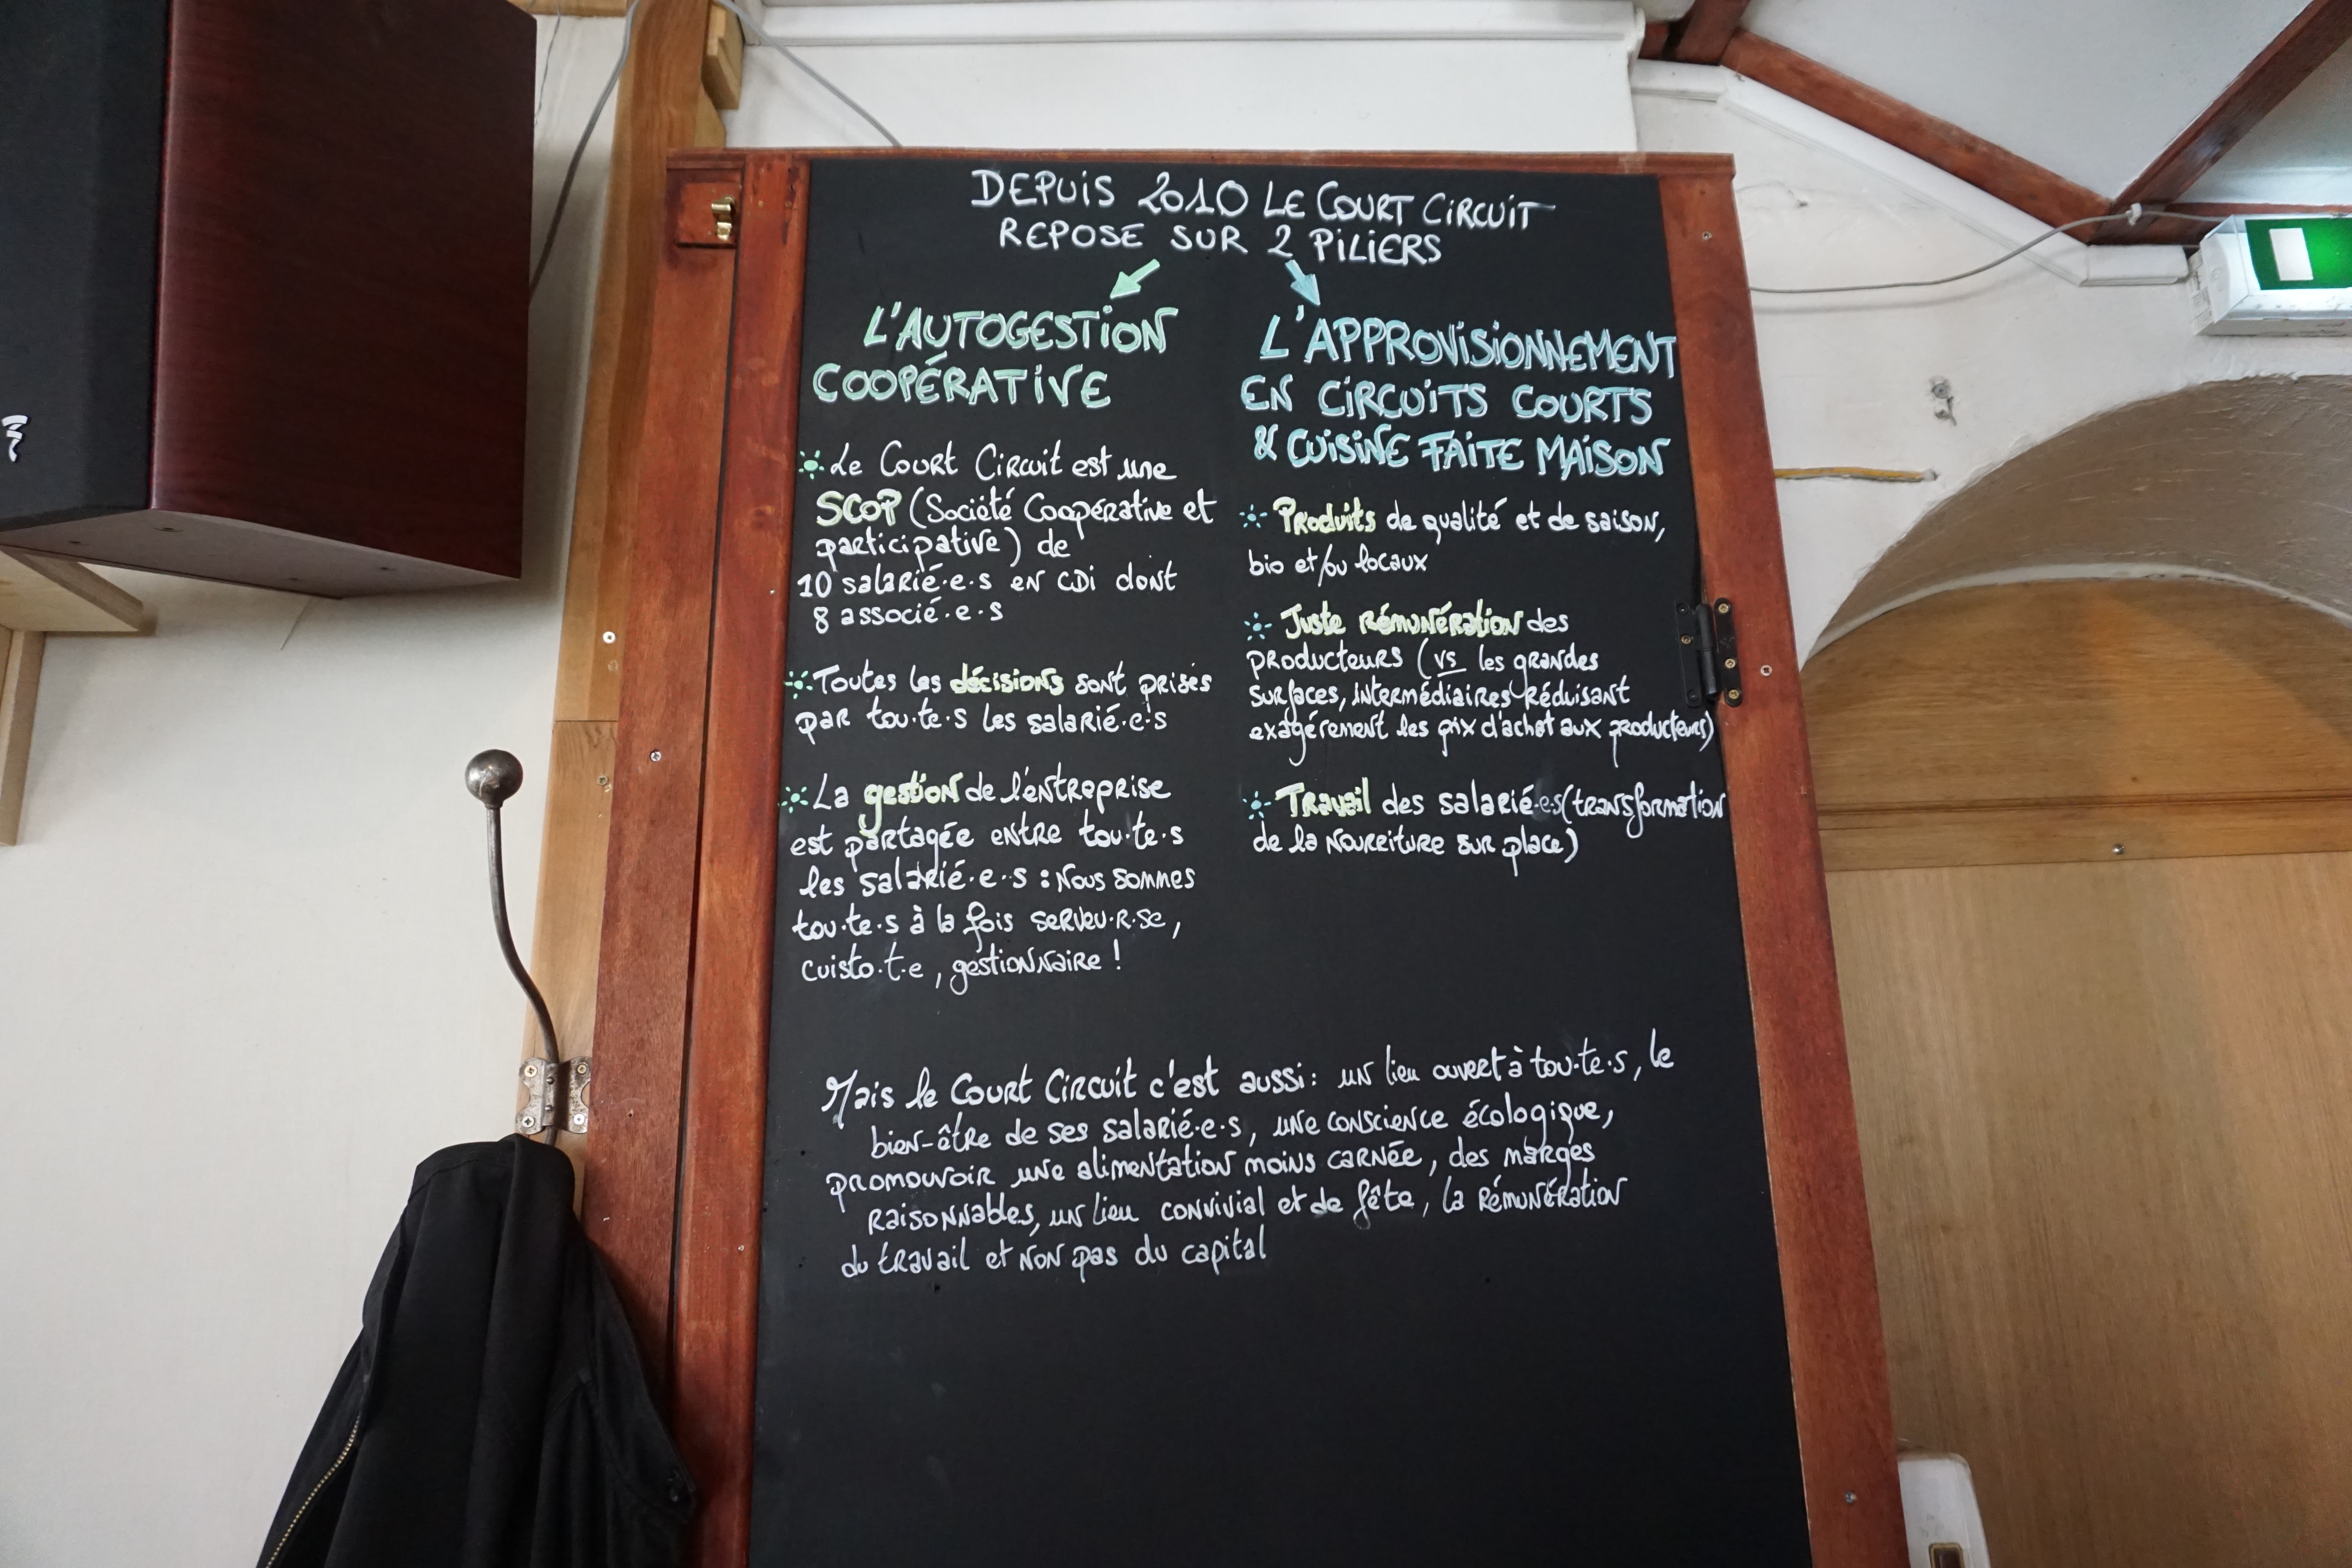 DEPUIS 2010 LE COURT CIRCUIT
REPOSE SUR 2 PILIERS
L'AUTOGESTION
COOPÉRATIVE
Le Court Circuit est une
SCOP (Société Coopérative et
participative) de
10 salarié·e·s en CDI dont
8 associé·e·s
Toutes les décisions sont prises
par tou·te·s les salarié·e·s
La gestion de l'entreprise
est partagée entre tou·te·s
les salarié·e·s : Nous sommes
tou·te·s à la fois serveu·r·se,
cuisto·t·e, gestionnaire !
L'APPROVISIONNEMENT
EN CIRCUITS COURTS
& CUISINE FAITE MAISON
Produits de qualité et de saison,
bio et/ou locaux
Juste rémunération des
producteurs (vs les grandes
surfaces, intermédiaires réduisant
exagérement les prix d'achat aux producteurs)
Travail des salarié·e·s (transformation
de la nourriture sur place)
Mais le Court Circuit c'est aussi : un lieu ouvert à tou·te·s, le
bien-être de ses salarié·e·s, une conscience écologique,
promouvoir une alimentation moins carnée, des marges
raisonnables, un lieu convivial et de fête, la rémunération
du travail et non pas du capital